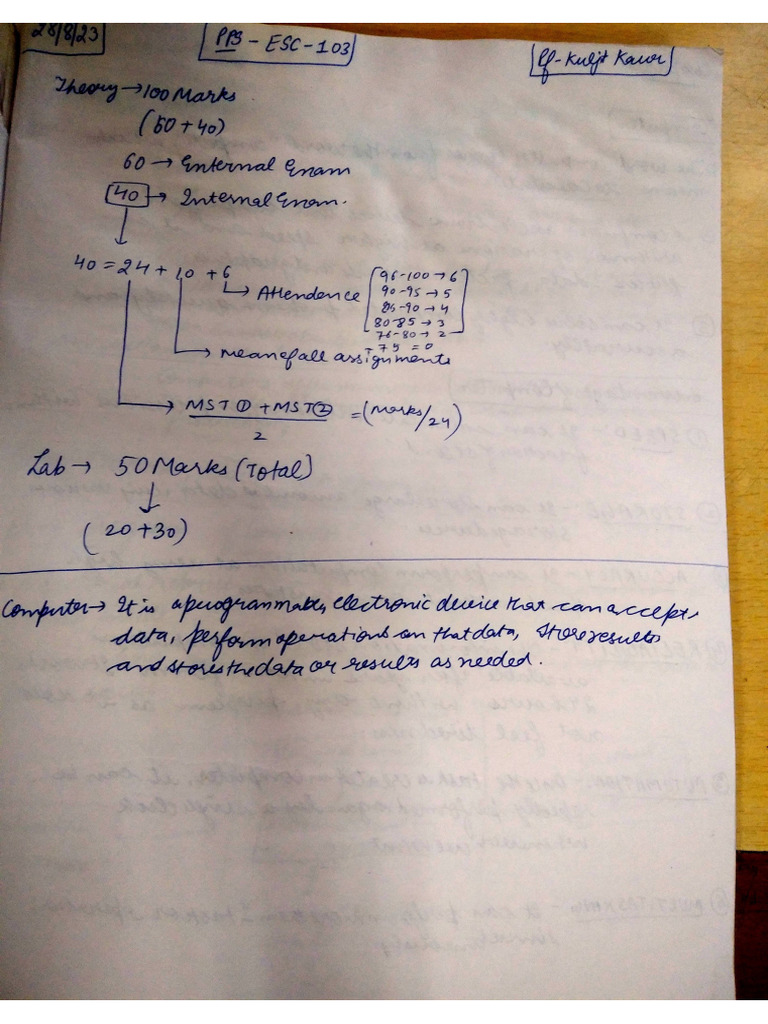 28/8/23
PPS - ESC-103
Pf- Kuljit Kaur
Theory → 100 Marks
(50+40)
60 → External Exam
40 → Internal Exam.
40 = 24 + 10 + 6
Attendence
96-100 → 6
90-95 → 5
85-90 → 4
80-85 → 3
76-80 → 2
-75 = 0
assignments
MST① + MST② = (Marks/24)
2
Lab → 50 Marks (Total)
(20+30)
Computer → It is a programmable, electronic device that can accept
data, perform operations on that data, store results
and stores the data or results as needed.